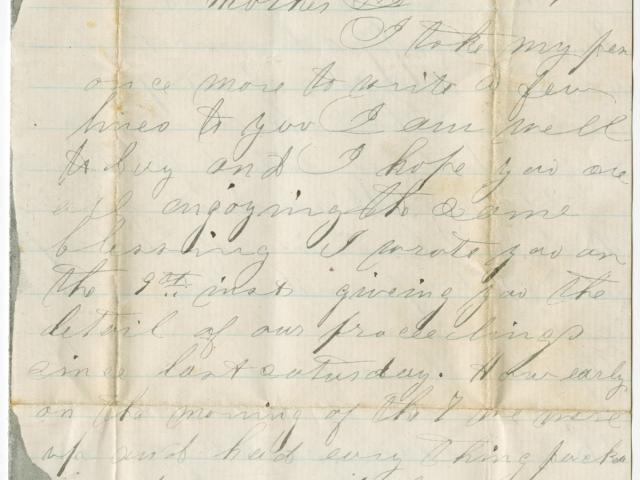 Mother
I take my pen
once more to write a few
lines to you I am well
to day and I hope you are
all engoying the same
blessing I wrote you on
the 9th inst giveing you the
detail of our proceedings
since last saturday. How early
on the morning of the 7 we were
up and had evry thing packe